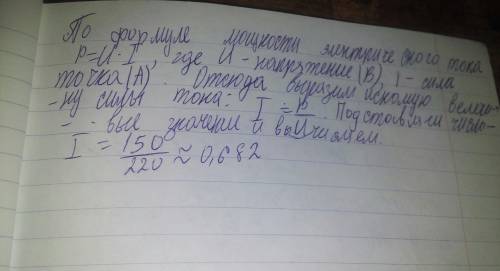 По формуле мощности электрического тока
P=U·I, где U - напряжение (В), I - сила
точка (А). Отсюда выразим искомую величи-
-ну силы тока: I = P/U. Подставим число-
- вые значения и вычисляем.
I = 150/220 ≈ 0,682